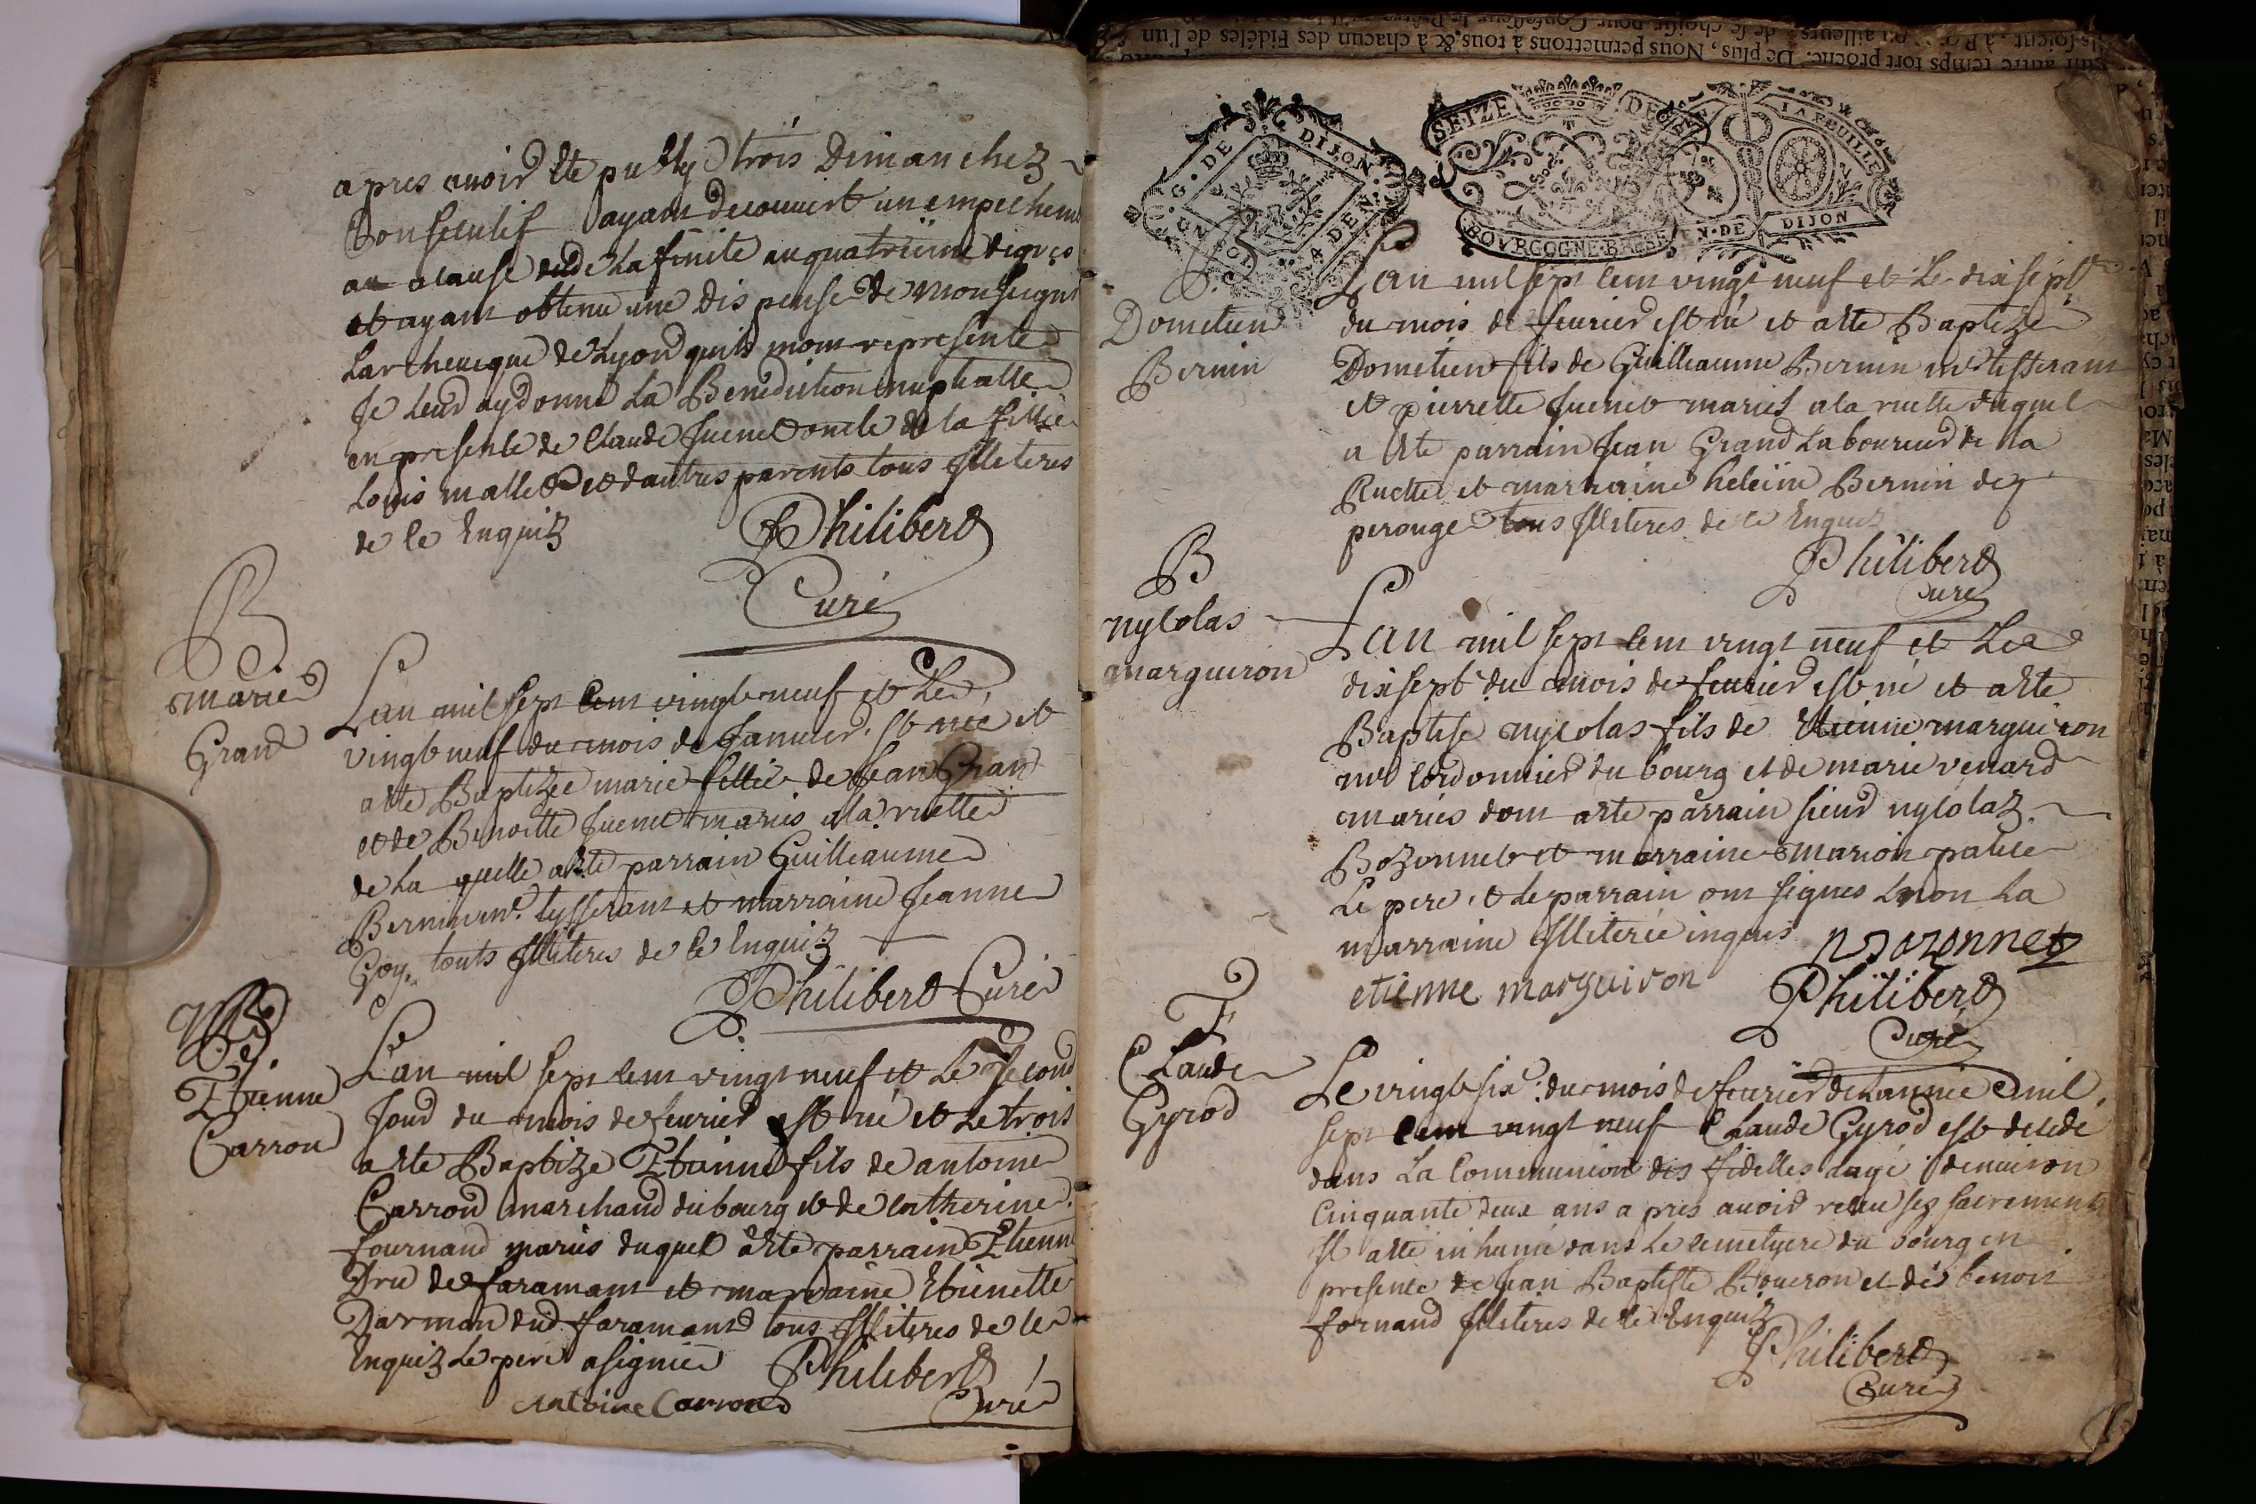 apres avoir ete publy trois Dimanchez
Consecutif ayant decouvert un empechem
a cause de de Lafinite au quatrieme degres
et ayant obtenu une dispense de monseign
Larcheveque de Lyon quils mont represente
Je leur ay donné La Benediction nuptialle
en presente de Claude Juenet oncle de la fillie
Louis mallet et dautres parents tous Illiteres
de ce Enquiz
Philibert
Curé
B
marie
Grand
Lan mil sept Cent vingt neuf et Le
vingt neuf du mois de Janvier est née et
a ete Baptizée marie fillie de Jean Gran
et de Benoitte Juenet mariés a la ruette
de La quelle a ete parrain Guilleaume
Bernin me. tysserant et marraine Jeanne
Goy touts Illiteres de ce Enquiz
Philibert Curé
B
Etienne
Carron
Lan mil sept Cent vingt neuf et Le second
Jour du mois de fevrier est né et Le trois
a ete Baptize Etienne fils de antoine
Carron marchand du bourg et de Catherine
fournand mariés duquel a ete parrain Etienn
Dru de faramant et marraine Etienette
Darman dud faramand tous Illiteres de ce
Enquiz Le pere a signie Philibert
antoine Carron Curé
un autre temps fort proche. De plus, Nous permettons à tous & à chacun des Fidéles de l'un
G. DE DIJON
4 DEN.
SEIZE DE
LA FEUILLE
BOVRGOGNE. BRESSE
EN. DE DIJON
B
Dometien
Bernin
Lan mil sept Cent vingt neuf et Le dixsept
du mois de fevrier est né et a ete Baptize
Dometien fils de Guilleaume Bernin me tisserant
et pierrette Juenet mariés a la ruette duquel
a ete parrain Jean Grand Laboureur de la
Ruette et marraine heleine Bernin de
perouge tous Illiteres de ce Enquiz
Philibert
Curé
B
nycolas
marguiron
Lan mil sept Cent vingt neuf et Le
dixsept du mois de fevrier est né et a ete
Baptise nycolas fils de Etienne marguiron
me Cordonnier du bourg et de marie venard
mariés dont a ete parrain sieur nycolaz
Bozonnet et marraine marion
Le pere et le parrain ont signes Non La
marraine Illiterée inquis nBozonnet
etienne marguiron Philibert
Curé
F
Claude
Gyrod
Le vingt six: du mois de fevrier de Lannée mil
sept Cent vingt neuf Claude Gyrod est decede
dans La Communion des fidelles agé denviron
Cinquante deux ans apres avoir receu ses sacrements
et a ete inhumé dans Le cemetyere du bourg en
presente de Jean Baptiste Boueron et de benoit
fornand Illiteres de ce Enquiz
Philibert
Curé